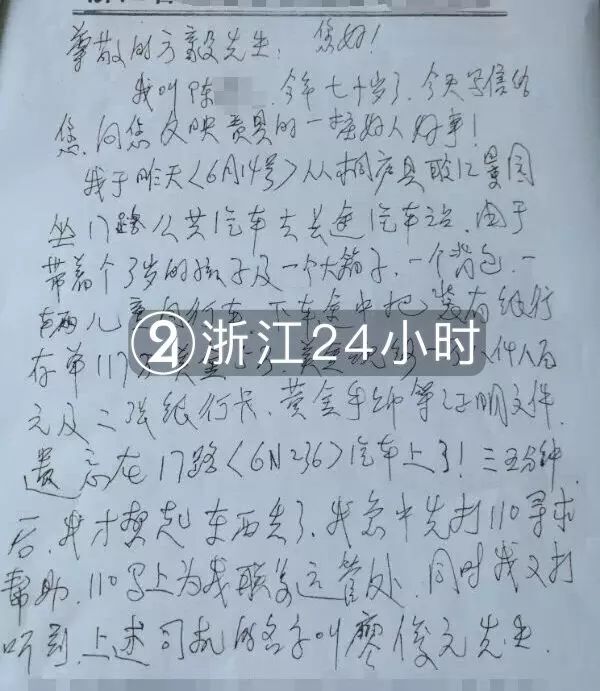 尊敬的方毅先生：您好！
我叫陈 今年七十岁了．今天写信给
您，向您反映贵县的一桩好人好事！
我于昨天〈6月14号〉从桐庐县 江景园
坐17路公共汽车去长途汽车站．由于
带着个3岁的孩子及一个大箱子，一个背包，一
辆儿童自行车．下车途中把装有银行
存单117万
浙江24小时
元及二张银行卡．黄金手 等证明文件．
遗忘在17路〈6N236〉汽车上了！三五分钟
后．我才想起东西丢了．我急中先打110寻求
帮助．110马上为我联系运营处．同时我又打
听到．上述司机的名子叫廖俊元先生．